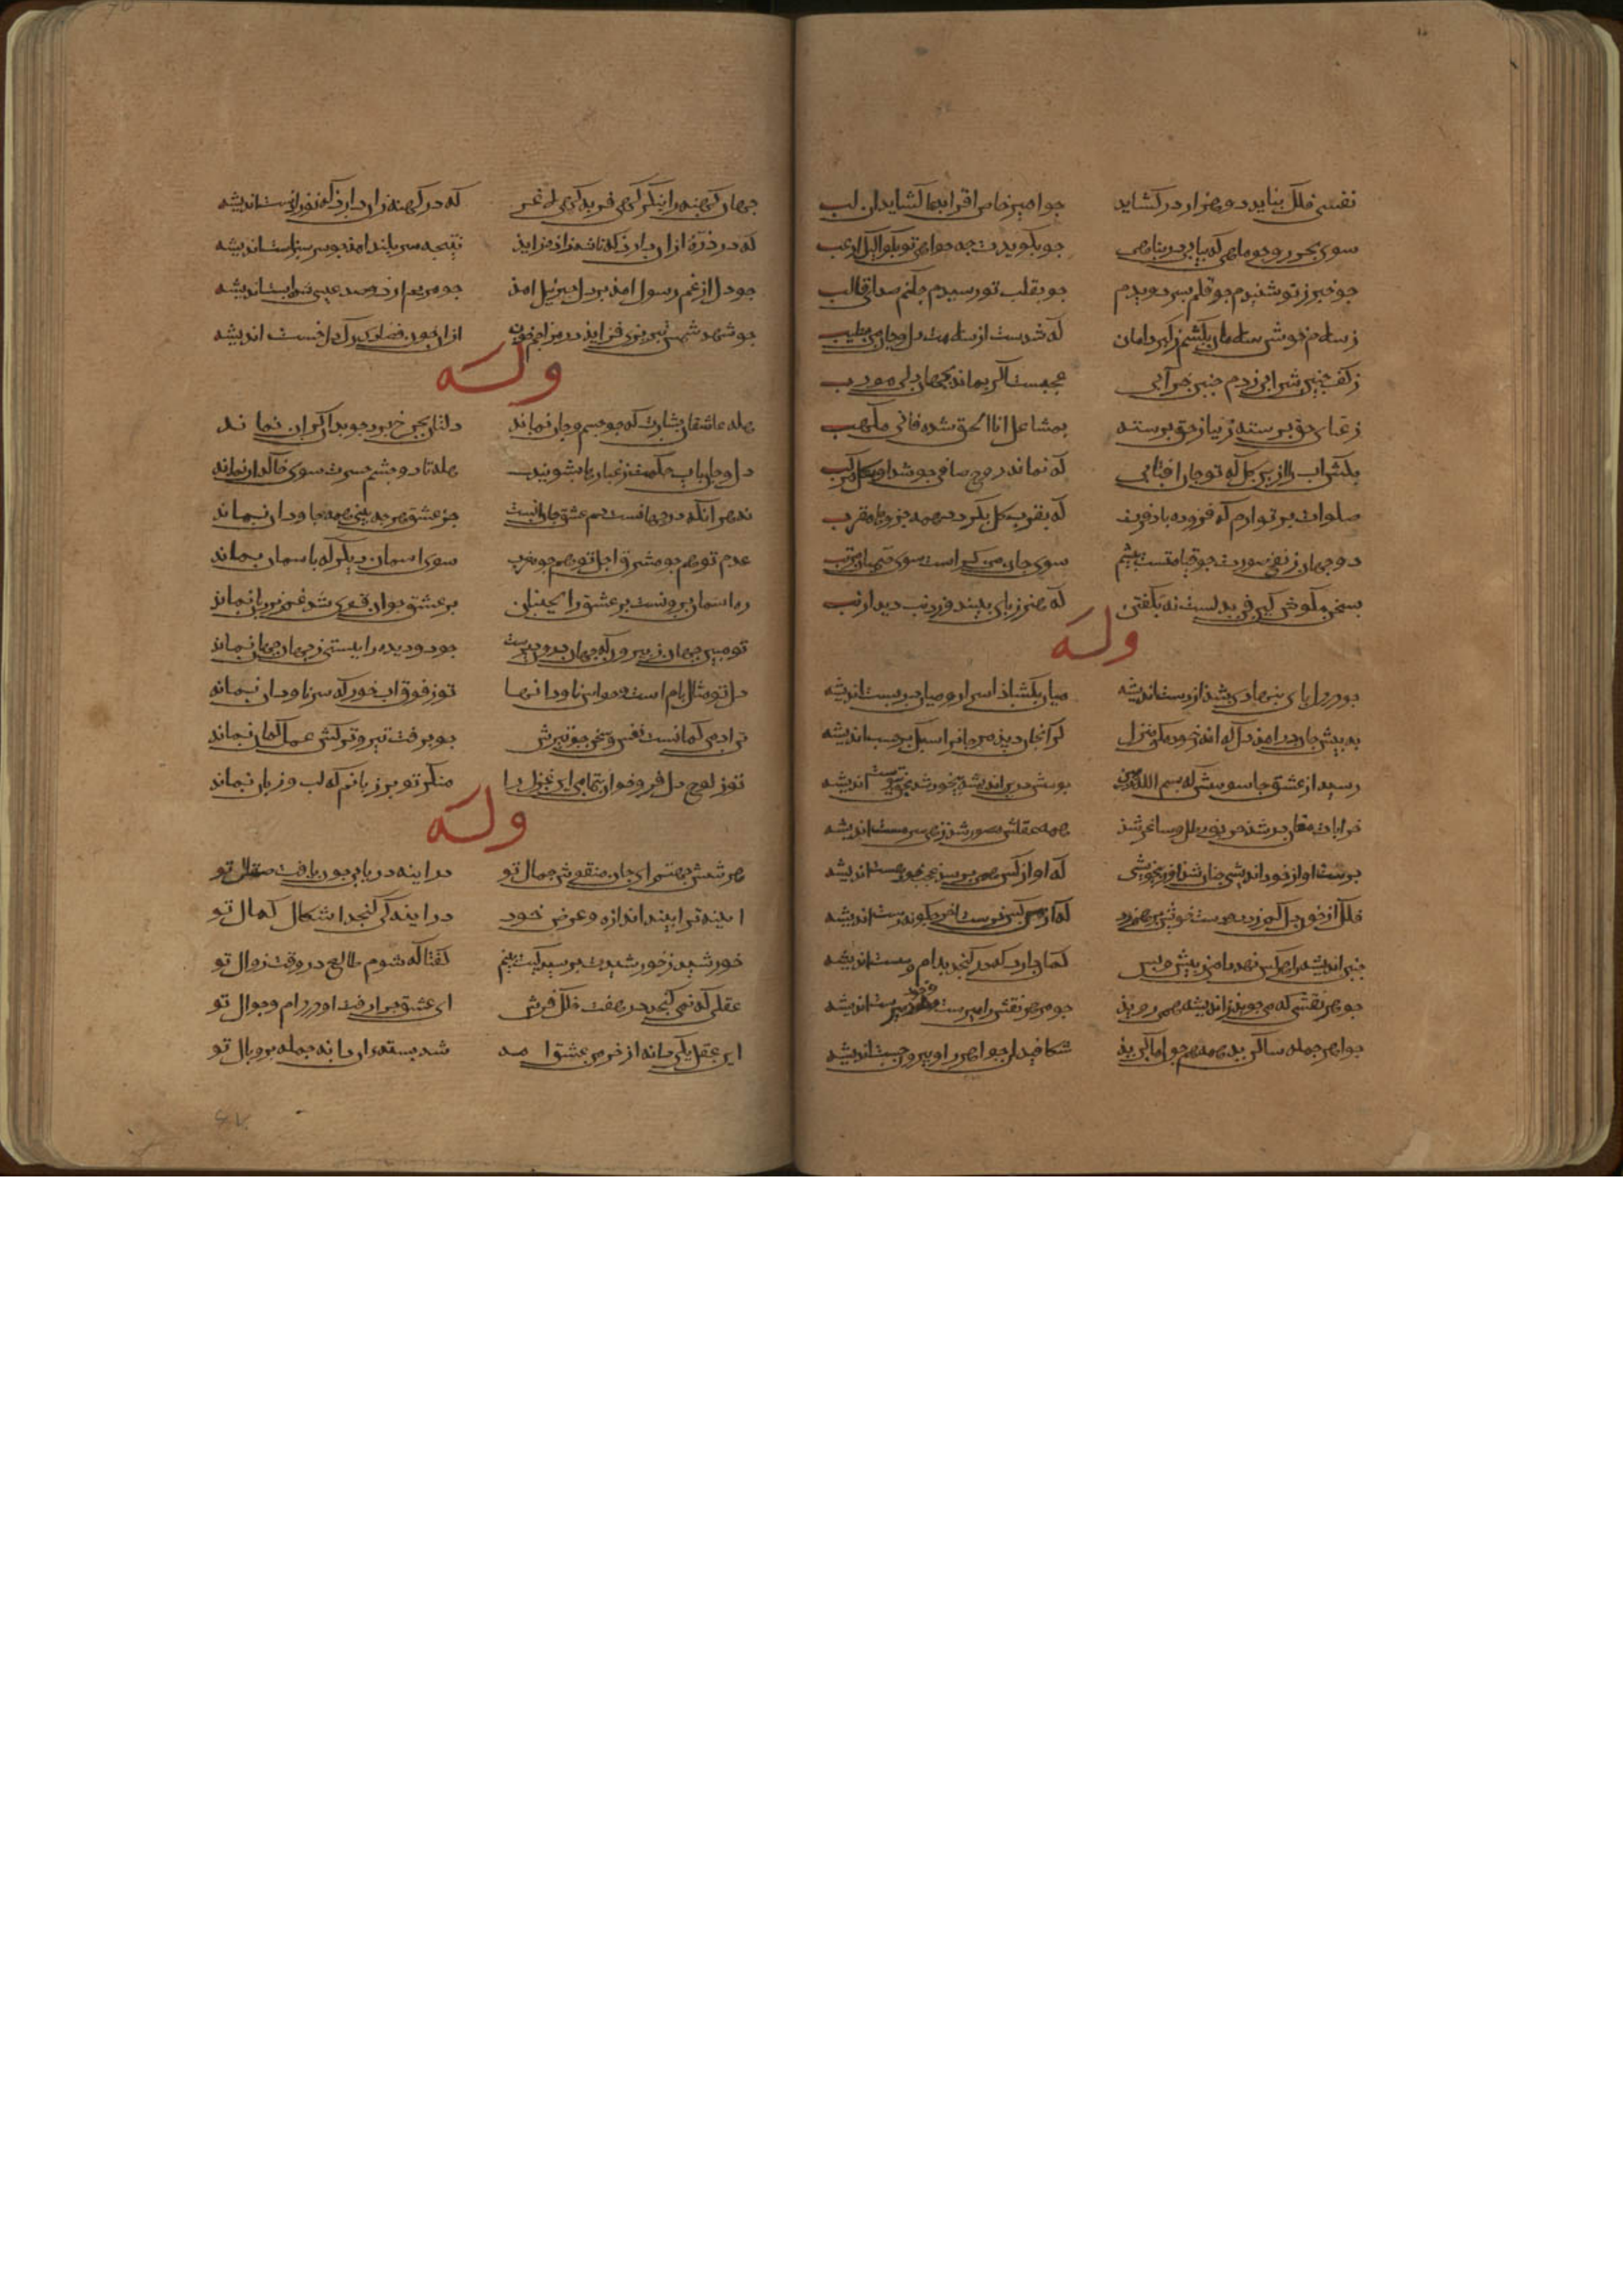 نفسی فلک نیاید دو هزار در کشاید جو امیر خاص اقرا بدعا کشاید ان لب
سوی بحر رو جو ماهی که بیابی در شاهی جو بکوید ت جه خواهی تو بکو الیک ارغب
جو خبر ز تو شنیدم جو قلم بسر دویدم جو بقلب تو رسیدم جکنم صداع قالب
ز سلام خوش سلامان بکشم ز کبر دامان که شدست از سلامت دل و جان من مطیب
ز کف جنین شرابی ز دم جنین خرابی عجبست اکر بماند بجهان دلی مودب
ز غنای حق برسته ز نیاز حق برسته بمشاعل انا الحق شده فانی ملهب
بکش اب را ازین کل که تو جان افتابی که نماند روح صافی جو شد او بکل مرکب
صلوات بر تو ارم که فزوده باد قربت که بقرب کل بکردد همه جزوها مقرب
دو جهان ز نفخ صورت جو قیامتست بیشم سوی جان
سخن مکوش کین فر بدلست نه بکفتن که هنر ز بای بینند و ز دنب دید ارنب
وله
جو در دل بای بنهادی بشد از دست اندیشه میان بکشاد اسرار و میان بربست اندیشه
به بیش جان درامد دل که اندر خود مکن منزل کرانجان دید مر جانرا سبک برجست اندیشه
رسید از عشق جاسوسش که بسم الله اندیشه
خرابات همه عقلش بصورت شد ز می سرمست اندیشه
برست او از خود اندیشی جنان شد او ز بی خویشی که او از کس همی برسد عجب خود هست اندیشه
فلک از خوف دل کم زد دو دست خویش بر هم زد که از من کس نرست اخر جکونه رست اندیشه
جنین اندیشه را هر کس نهد دامی ببیش و بس کمان دارد که در کنجد بدام و شست اندیشه
جو هر نقشی که می جوید ز اندیشه همی روید جو مر هر نقش را اندیشه
جواهر جمله ساکن بد همه همجون اماکن بد شکافید این جواهر را و بیرون جست اندیشه
جهان کهنه را بنکر کهی فربه کهی لاغر که درد کهنه زان دارد که نوزادست اندیشه
که درد زه ازان دارد که تا شه زاده زاید نتیجه سربلند امد جو شد سربست اندیشه
جو دل از غم رسول امد بر دل جبرئیل امد جو مریم از دو صد عیسی شد ابست اندیشه
جو شهد شمس تبریزی فزاید در مزاج خون ازان جون فصد کرک دل خست اندیشه
وله
هله عاشقان بشارت که جو جسم و جان نماند دلتان بجرخ برد جو بدن کران نماند
دل و جان باب حکمت ز غبارها بشویید هله تا دو جشم حسرت سوی خاکدان نماند
نه هر انکه در جهانست هم عشق جان انست جز عشق هر جه بینی همه جاودان نماند
عدم تو همجو مشرق اجل تو همجو مغرب سوی اسمان دیکر که باسمان بماند
ره اسمان درونست بر عشق را بجنبان بر عشق جون قوی شد غم نردبان نماند
تو مبین جهان ز بیرون که جهان درون دیدست جو دو دیده را ببستی ز جهان جهان نماند
دل تو مثال بامست و حواس ناودانها تو ز فوق اب خور که سر ناودان نماند
تن ادمی کمانست نفس و سخن جو تیرش جو برفت تیر و ترکش عمل کمان نماند
تو ز لوح دل فرو خوان بتمامی این غزل را منکر تو بر زبانم که لب و زبان نماند
وله
هر شش جهتم ای جان منقوش جمال تو در اینه دریابی جون یافت صقال تو
اینه ترا بیند اندازه و عرض خود در اینه کی کنجد اشکال کمال تو
خورشید ز خورشیدت برسید کیت بینم کفتا که شوم طالع در وقت زوال تو
عقلی که نمی کنجد در هفت فلک فرش ای عشق جرا رفت او در دام و جوال تو
این عقل یکی دانه از خرمن عشق امد شد بسته ان دانه جمله بر و بال تو